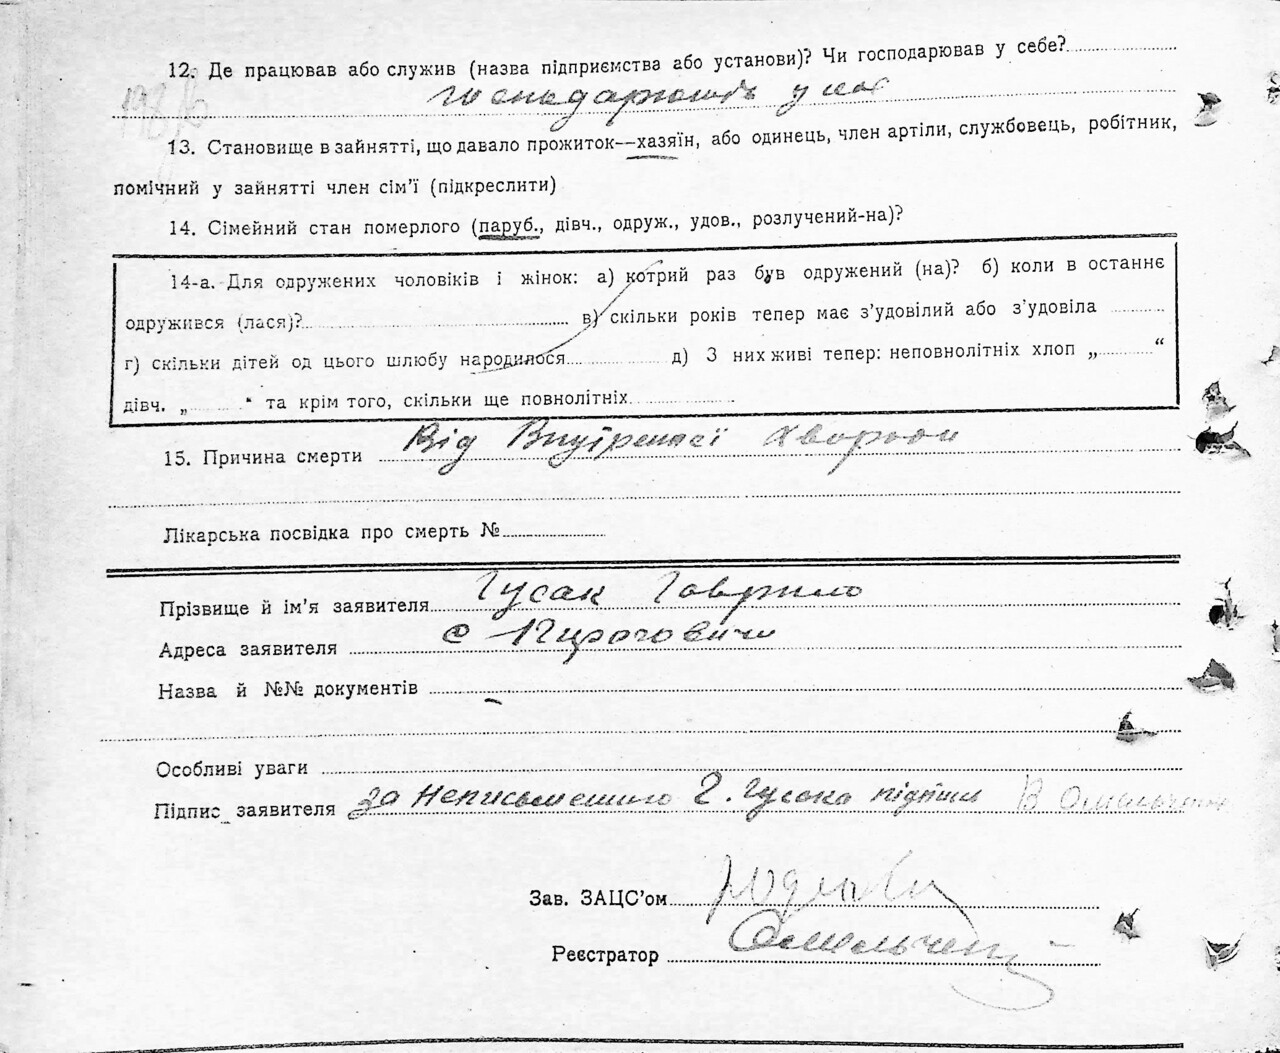 12. Де працював або служив (назва підприємства або установи)? Чи господарював у себе?
у
13. Становище в зайнятті, що давало прожиток—хазяїн, або одинець, член артіли, службовець, робітник,
помічний у зайнятті член сім'ї (підкреслити)
14. Сімейний стан померлого (паруб., дівч., одруж., удов., розлучений-на)?
14-а. Для одружених чоловіків і жінок: а) котрий раз був одружений (на)? б) коли в останнє
одружився (лася)? в) скільки років тепер має з'удовілий або з'удовіла
г) скільки дітей од цього шлюбу народилося д) З них живі тепер: неповнолітніх хлоп „ “
дівч. „ “ та крім того, скільки ще повнолітніх
15. Причина смерти Від Внутренеї хвороби
Лікарська посвідка про смерть №
Прізвище й ім'я заявителя Гусак Гаврило
Адреса заявителя с Пироговичи
Назва й №№ документів -
Особливі уваги
Підпис заявителя за Неписьменного Г. Гусака підпіши В Омельченко
Зав. ЗАЦС'ом
Реєстратор Омельченко